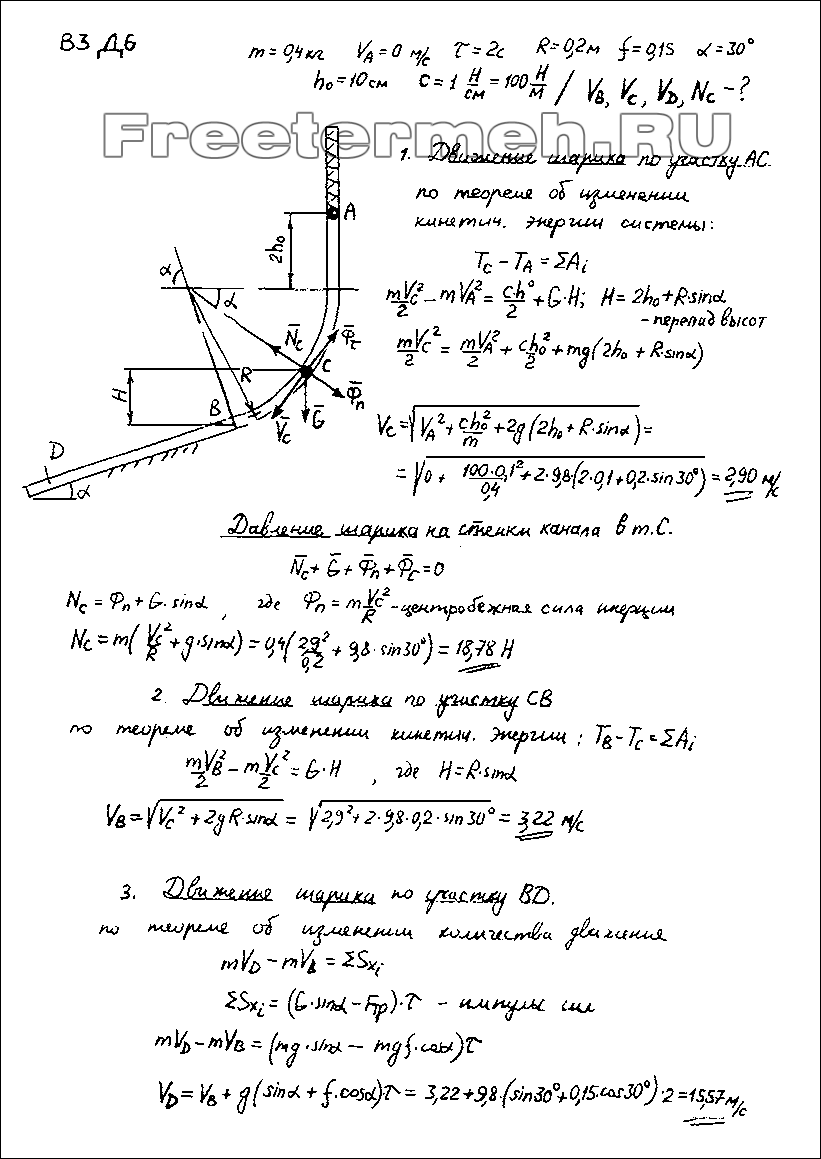 В3 Д6
m=0,4кг V_A=0 м/с τ=2с R=0,2м f=0,15 α=30°
h₀=10см c=1 Н/см=100 Н/м / V_B, V_C, V_D, N_C -?
Freetermeh.RU
1. Движение шарика по участку АС.
по теореме об изменении
кинетич. энергии системы:
T_C - T_A = ΣA_i
mV_C²/2 - mV_A² = c·h⁰/2 + G·H; H=2h₀+R·sinα
- перепад высот
mV_C²/2 = mV_A²/2 + ch₀²/2 + mg(2h₀ + R·sinα)
V_C=√(V_A² + ch₀²/m + 2g(2h₀+R·sinα)) =
= √(0+ 100·0,1²/0,4 + 2·9,8·(2·0,1+0,2·sin30°)) = 2,90 м/с
A
2h₀
α
α
N̄_C
Φ̄_τ
C
R
Φ̄_n
H
B
V̄_C
Ḡ
D
α
Давление шарика на стенки канала в т.С.
N̄_C + Ḡ + Φ̄_n + Φ̄_C = 0
N_C = Φ_n + G·sinα , где Φ_n = m V_C²/R - центробежная сила инерции
N_C = m(V_C²/R + g·sinα) = 0,4(2,9²/0,2 + 9,8·sin30°) = 18,78 Н
2. Движение шарика по участку СВ
по теореме об изменении кинетич. энергии : T_B - T_C = ΣA_i
mV_B²/2 - mV_C²/2 = G·H , где H=R·sinα
V_B = √(V_C² + 2gR·sinα) = √(2,9² + 2·9,8·0,2·sin30°) = 3,22 м/с
3. Движение шарика по участку BD.
по теореме об изменении количества движения
mV_D - mV_B = ΣS_xi
ΣS_xi = (G·sinα - Fтр)·τ - импульс сил
mV_D - mV_B = (mg·sinα - mgf·cosα)τ
V_D = V_B + g(sinα + f·cosα)τ = 3,22+9,8·(sin30°+0,15·cos30°)·2 = 15,57 м/с